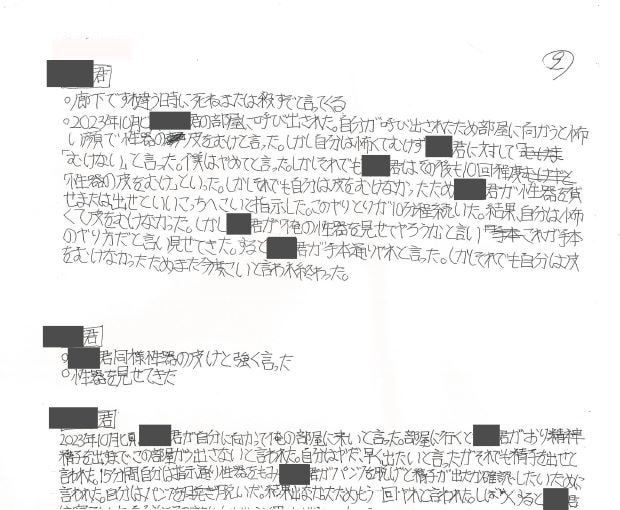 ②
君
○廊下ですれ違う時に死ねまたは殺すぞと言ってくる
○2023年10月に 君の部屋に呼び出された。自分が呼び出されたため部屋に向かうと怖
い顔で性器の皮をむけと言った。しかし自分は怖くてむけず 君に対して
「むけない」と言った。僕はやめてと言った。しかしそれでも 君はその後も10回程度
「性器の皮をむけ」といった。しかしそれでも自分は皮をむけなかったため 君が性器を
せまたは出せといいこっちへこいと指示した。このやりとりが10分程続いた。結果、自分は怖
くて皮をむけなかった。しかし 君が「俺の性器を見せてやろうか」と言い「これが手本
のやり方だと言い見せてきた。すると 君が手本通りやれと言った。しかしそれでも自分は皮
をむけなかったためまた今度こいと言われ終わった。
君
○ 君同様性器の皮むけと強く言った
○性器を見せてきた
君
2023年10月頃、 君が自分に向かって俺の部屋に来いと言った。部屋に行くと 君がおり
精子を出すまで、この部屋から出さないと言われた。自分はやだ、早く出たいと言ったがそれでも精子を出せと
言われた。15分間自分は指示通り性器をもみ 君がパンツを脱げと精子が出たか確認したいために
言われた。自分はパンツを 脱いだ。結果出なかったためもう 回やれと言われた。しばらくすると 君